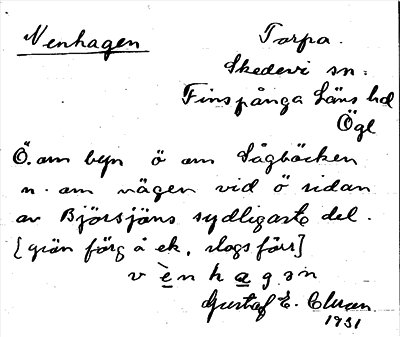 Nenhagen Torpa.
Skedevi sn:
Finspånga Läns hd
Ögl
Ö. om byn ö om Sågbäcken
n. om vägen vid ö sidan
av Björsjöns sydligaste del.
[grön färg å ek, slogs förr]
v è n h a g ə n
Gustaf E.
1931